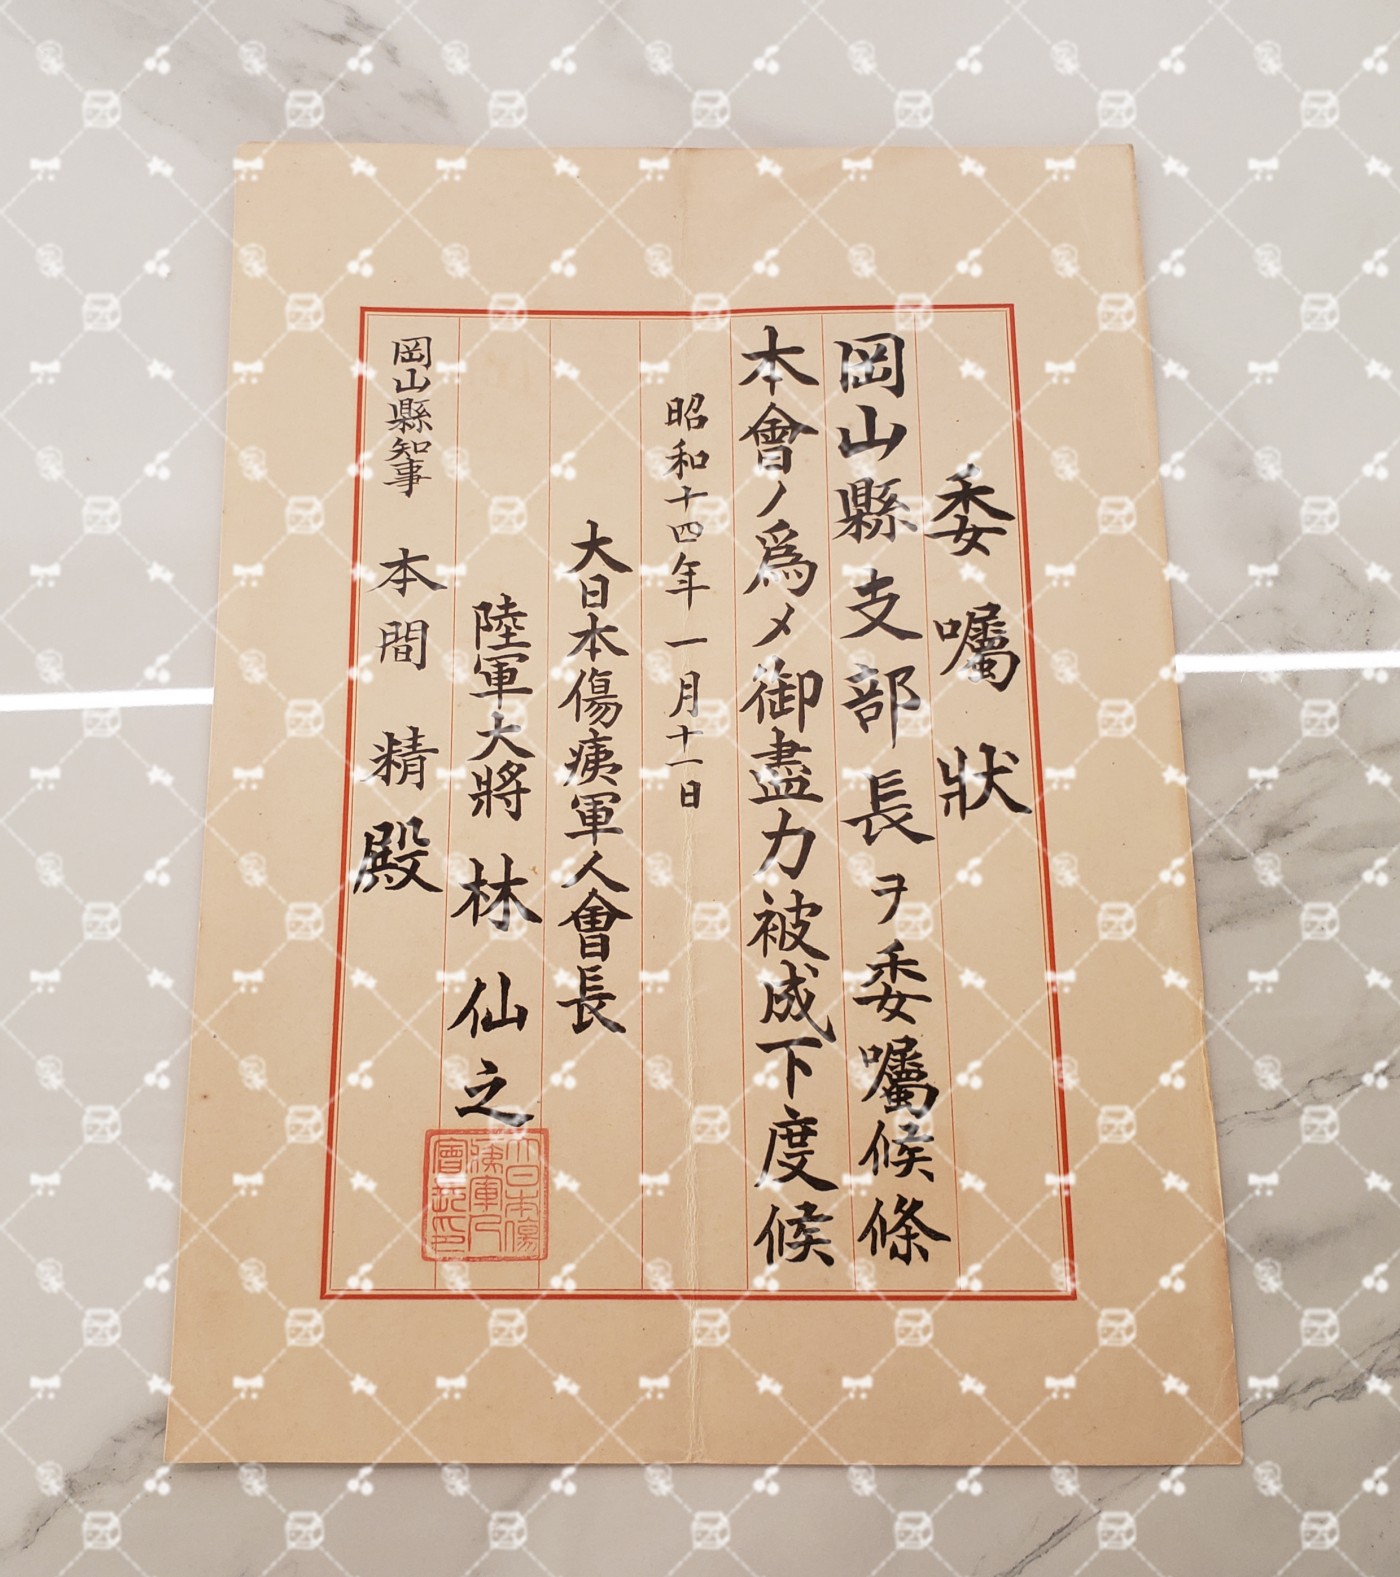 委囑狀
岡山縣支部長ヲ委囑候條
本會ノ爲メ御盡力被成下度候
昭和十四年一月十一日
大日本傷痍軍人會長
陸軍大將 林仙之
大日本傷
痍軍人
會長印
岡山縣知事 本間精殿